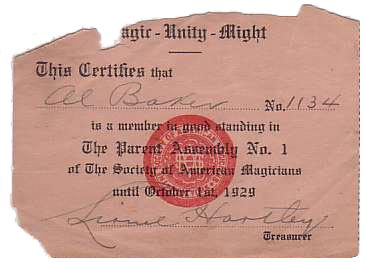 agic-Unity-Might
This Certifies that
Al Baker No. 1134
is a member in good standing in
The Parent Assembly No. 1
of The Society of American Magicians
until October 1st, 1929
Hartley
Treasurer